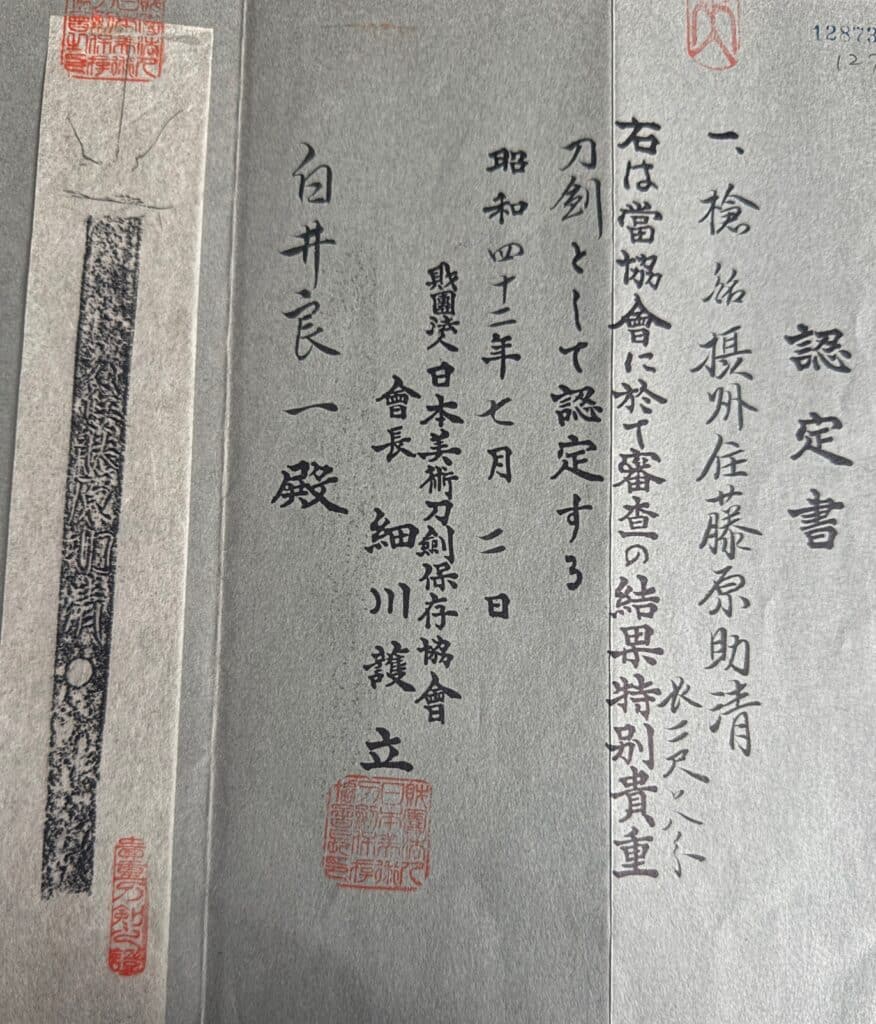 12873
127
認定書
一、槍 銘 摂州住藤原助清
長二尺〇八分
右は當協會に於て審査の結果特別貴重
刀劍として認定する
昭和四十二年七月二日
財團法人日本美術刀劍保存協會
會長 細川護立
白井良一殿
住藤原助清